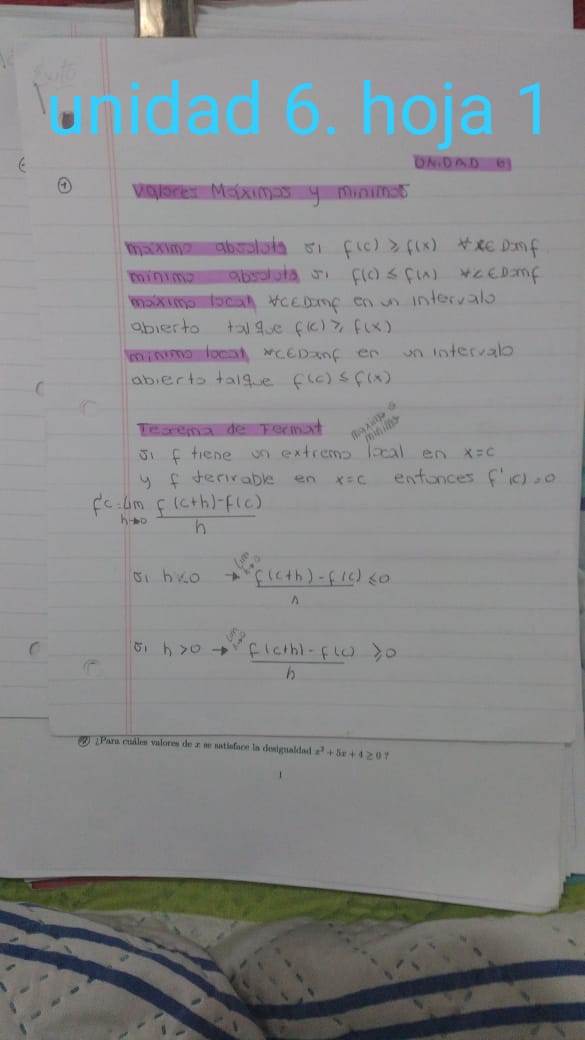 unidad 6. hoja 1
UNIDAD 6
1
Valores Máximos y minimos
maximo absoluto si f(c) ≥ f(x) ∀ x ∈ Domf
minimo absoluto si f(c) ≤ f(x) ∀ x ∈ Domf
máximo local ∀ c ∈ Domf en un intervalo
abierto tal que f(c) ≥ f(x)
minimo local ∀ c ∈ Domf en un intervalo
abierto tal que f(c) ≤ f(x)
Teorema de Fermat
maximo o
minimo
si f tiene un extremo local en x=c
y f derivable en x=c entonces f'(c)=0
f'c = lim h→0 f(c+h)-f(c) / h
si h<0 → lim h→0 f(c+h)-f(c) / h ≤0
si h>0 → lim h→0 f(c+h)-f(c) / h ≥0
¿Para cuáles valores de x se satisface la desigualdad x² + 5x + 4 ≥ 0 ?
1